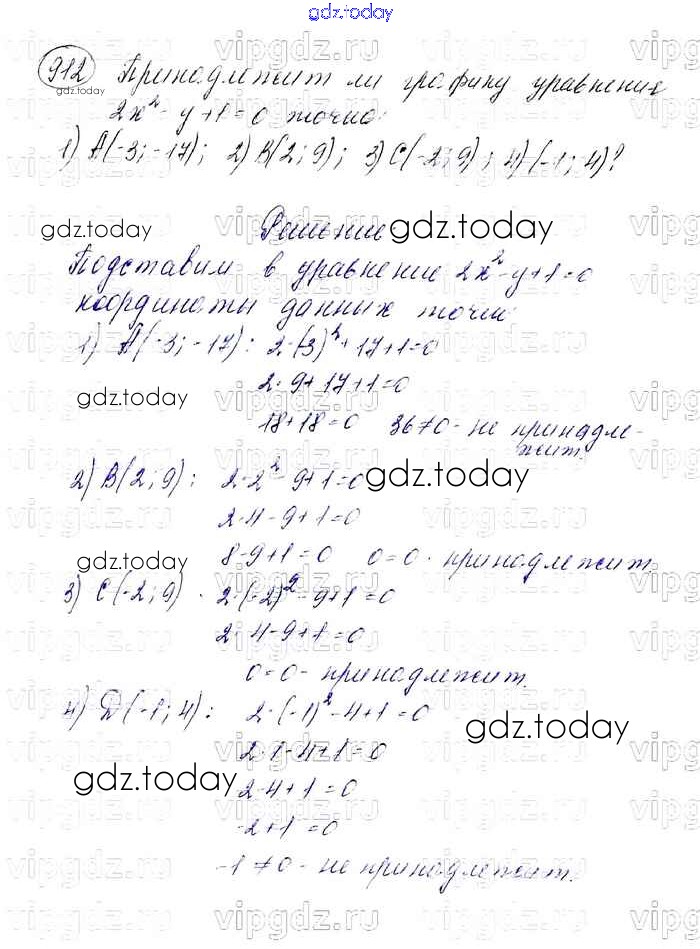 gdz.today
912 Принадлежит ли графику уравнения
gdz.today
2x² - y + 1 = 0 точка:
1) A(-3; -17); 2) B(2; 9); 3) C(-2; 9); 4) (-1; 4)?
gdz.today Решение gdz.today
Подставим в уравнение 2x² - y + 1 = 0
координаты данных точек
1) A(-3; -17): 2·(-3)² + 17 + 1 = 0
gdz.today 2·9 + 17 + 1 = 0
18 + 18 = 0 36 ≠ 0 - не принадле-
жит.
2) B(2; 9): 2·2² - 9 + 1 = 0 gdz.today
2·4 - 9 + 1 = 0
gdz.today 8 - 9 + 1 = 0 0 = 0 - принадлежит.
3) C(-2; 9) 2·(-2)² - 9 + 1 = 0
2·4 - 9 + 1 = 0
0 = 0 - принадлежит.
4) D(-1; 4): 2·(-1)² - 4 + 1 = 0
gdz.today
2·1 - 4 + 1 = 0
gdz.today
2 - 4 + 1 = 0
-2 + 1 = 0
-1 ≠ 0 - не принадлежит.
vipgdz.ru